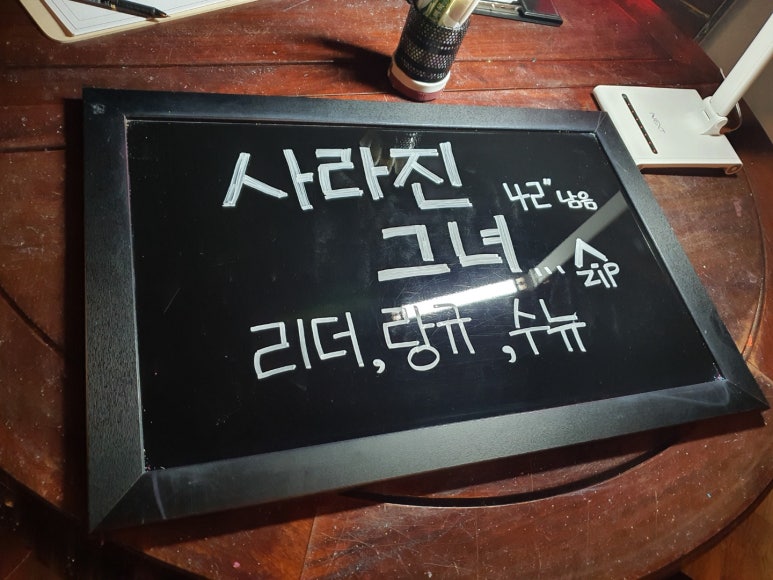 사라진
42" 남음
그녀...
^
zip
리더, 랑규, 수뉴